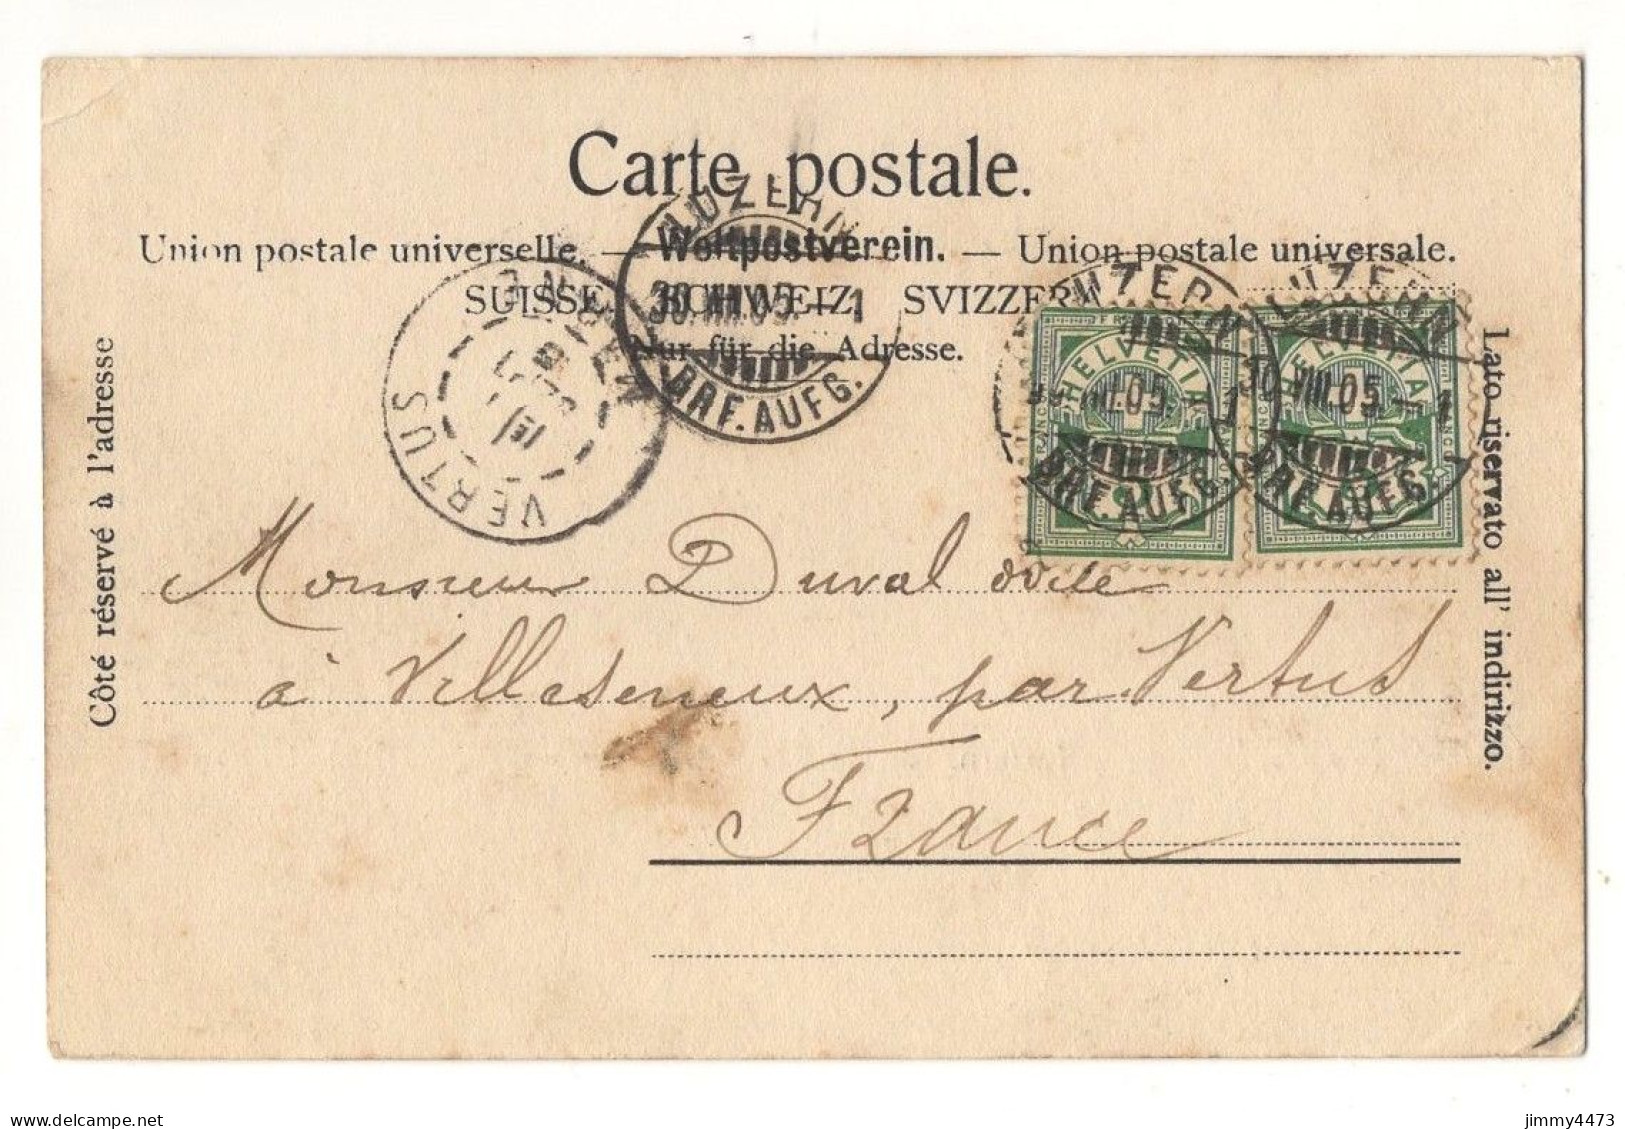 Carte postale.
Union postale universelle. — Weltpostverein. — Union postale universale.
SUISSE. SCHWEIZ. SVIZZERA
Nur für die Adresse.
Côté réservé à l'adresse
Lato riservato all' indirizzo.
LUZERN
30.VIII.05.-1
BRF.AUFG.
VERTUS
MARNE
LUZERN
VIII.05.
1
BRF.AUFG.
LUZERN
30.VIII.05.-1
BRF.AUFG.
HELVETIA
FRANCO
HELVETIA
FRANCO
Monsieur Duval
à Villeseneux, par Vertus
France
www.delcampe.net
jimmy4473